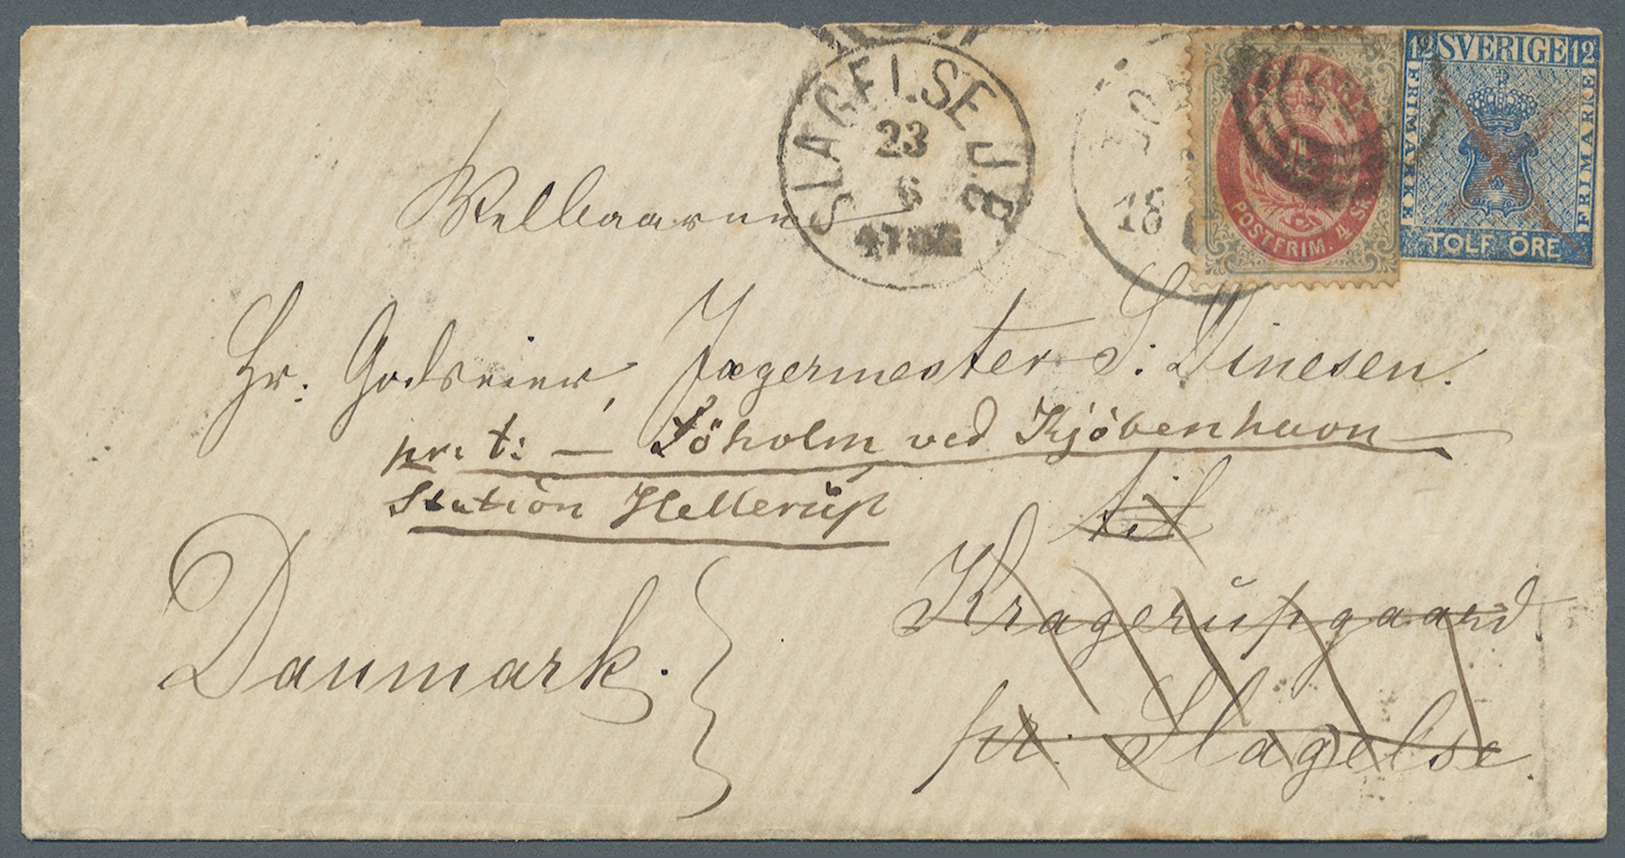 SLAGELSE JB
23
6
SVERIGE
12 12
FRIMARKE FRIMARKE
TOLF ÖRE
POSTFRIM. 4 SK
18
Velbaarne
Hr. Godseier, Jægermester S: Dinesen.
pr: t: — Söholm ved Kjöbenhavn
Station Hellerüp
til
Kragerüpgaard
Danmark.
pr. Slagelse.